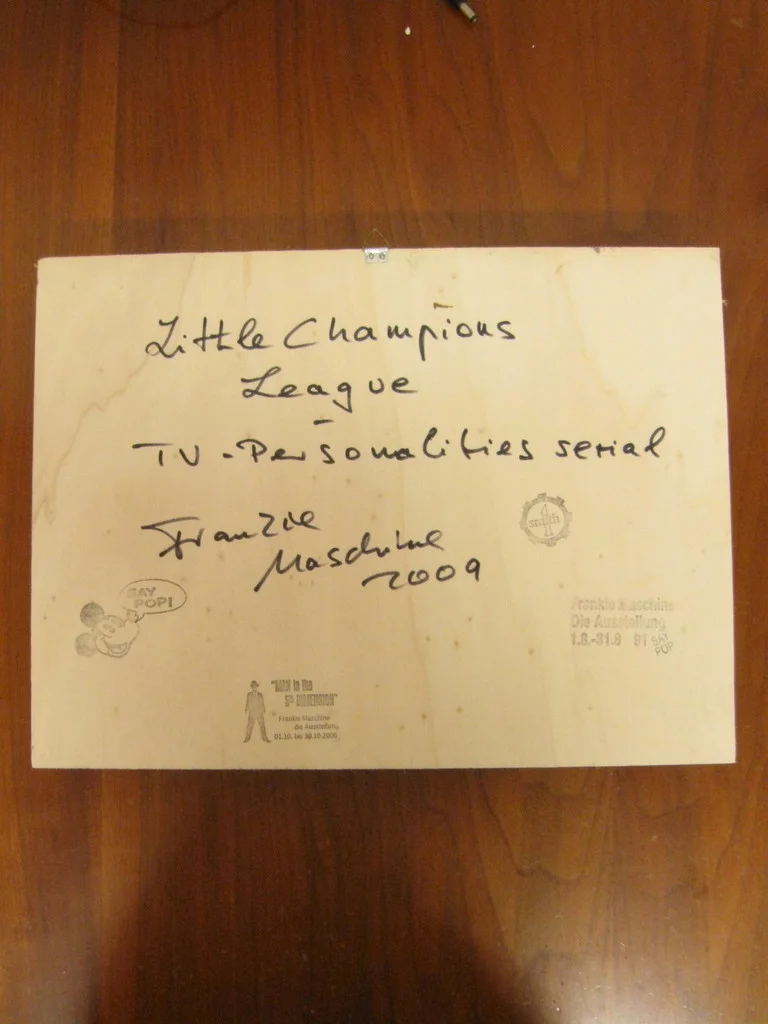 Little Champions
League
-
TV-Personalities serial
Frankie
Maschine
2009
smith
SAY
POP!
Frankie Maschine
Die Ausstellung
1.8.-31.8 91
SAY
POP
"MAN in the
5th DIMENSION"
Frankie Maschine
die Ausstellung
01.10. bis 30.10.2000